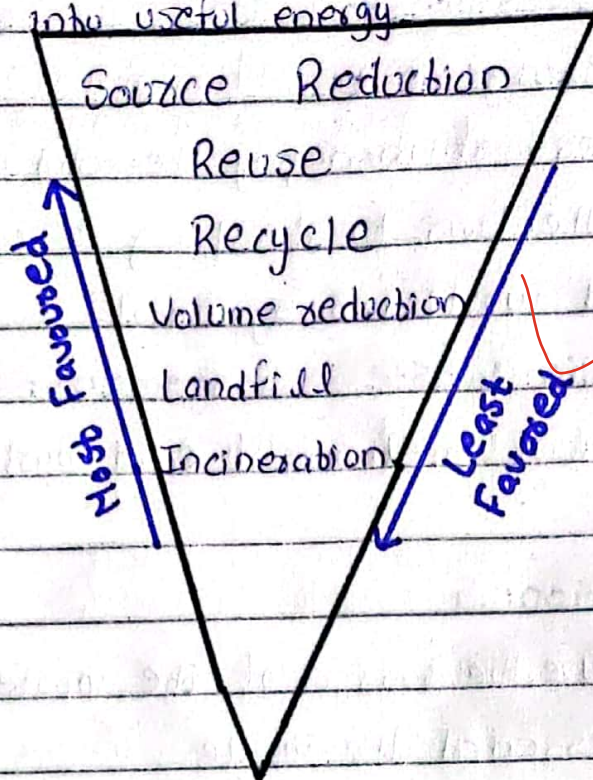 into useful energy
Source Reduction
Reuse
Recycle
Volume reduction
Landfill
Incineration
Most Favoured
Least
Favored